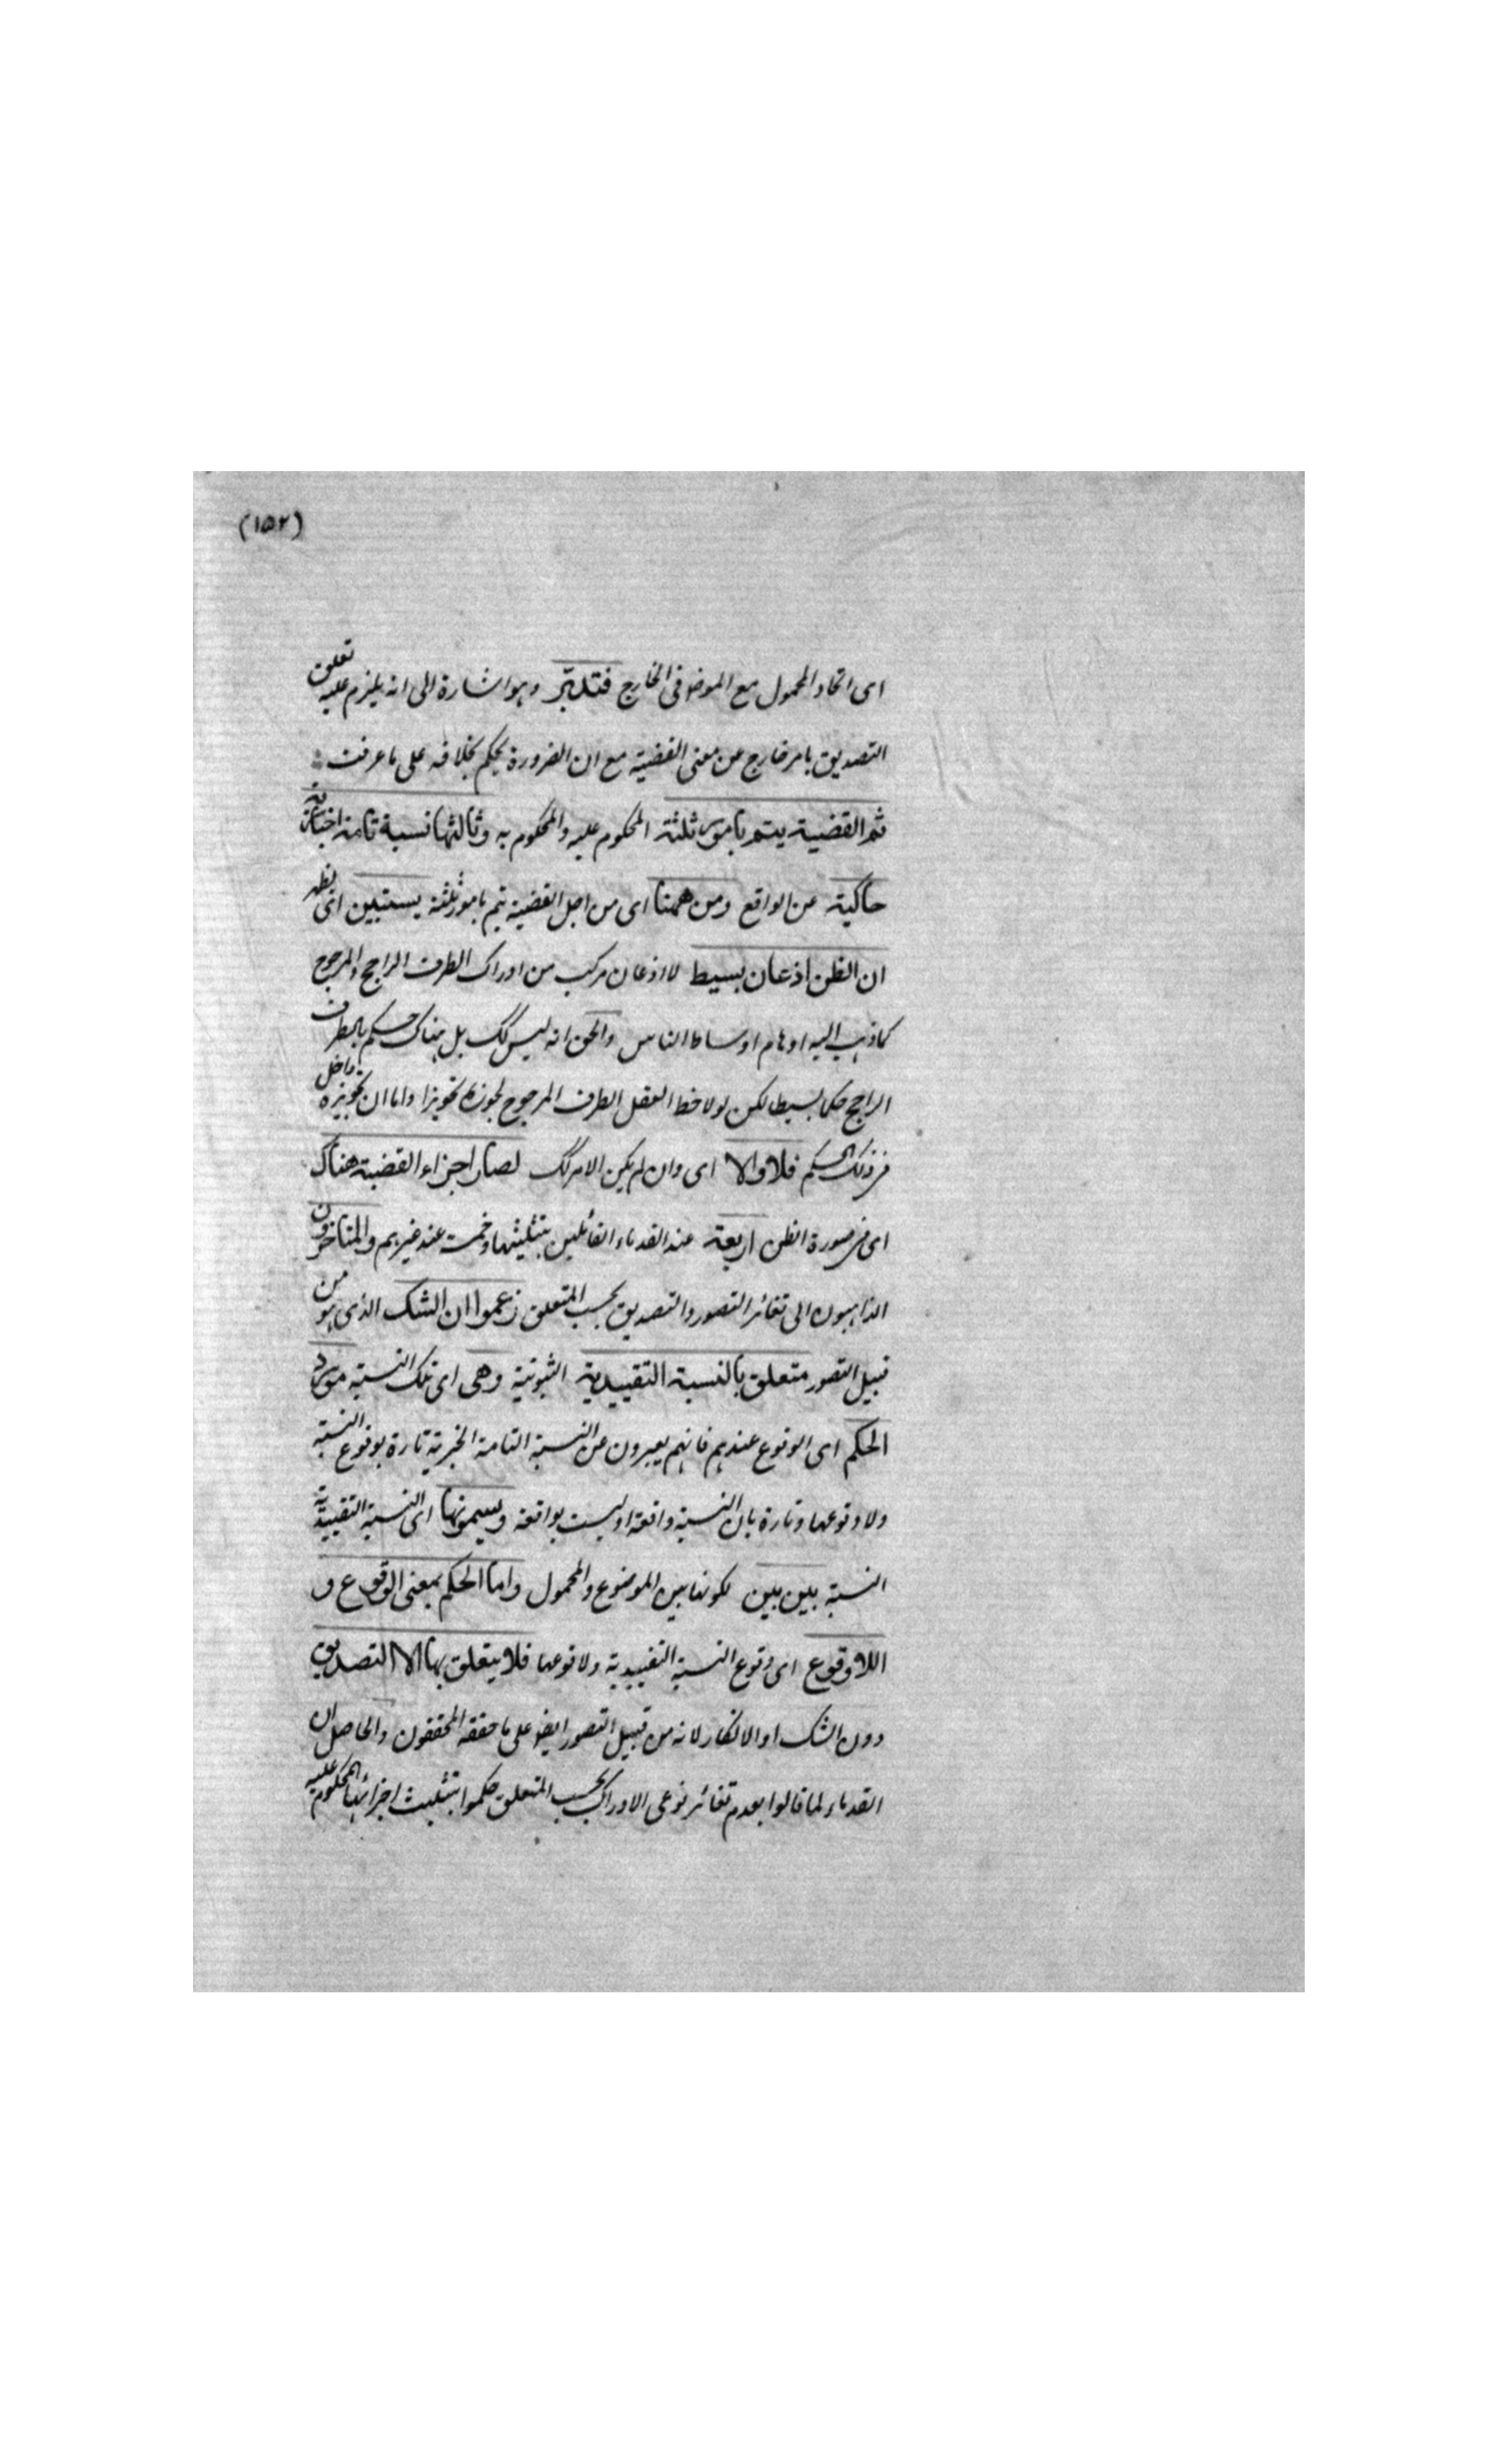 (١٥٢)
اى اتحاد المحمول مع الموضوع فى الخارج فتدبّر وهو اشارة الى انه يلزم عليه تعلق
التصديق بامر خارج عن معنى القضية مع ان الضرورة يحكم بخلافه على ما عرفت
ثم القضية يتم بامور ثلثة المحكوم عليه والمحكوم به وثالثها نسبة تامة اخبارية
حاكية عن الواقع ومن ههنا اى من اجل القضية يتم بامور ثلثة يستبين اى يظهر
ان الظن اذعان بسيط لا اذعان مركب من ادراك الطرف الراجح والمرجوح
كما ذهب اليه اوهام اوساط الناس والحق انه ليس كك بل هناك حكم بالطرف
الراجح حكما بسيطا لكن لو لاحظ العقل الطرف المرجوح لجوزه تجويزا واما ان تجويزه داخل
فى ذلك الحكم فلا والا اى وان لم يكن الامر كك لصار اجزاء القضية هناك
اى فى صورة الظن اربعة عند القدماء القائلين بتثليثها وخمسة عند غيرهم والمتاخرون
الذاهبون الى تغائر التصور والتصديق بحسب المتعلق زعموا ان الشك الذى هو من
قبيل التصور متعلق بالنسبة التقييدية الثبوتية وهى اى تلك النسبة مورد
الحكم اى الوقوع عندهم فانهم يعبرون عن النسبة التامة الخبرية تارة بوقوع النسبة
ولا وقوعها وتارة بان النسبة واقعة او ليست بواقعة ويسمونها اى النسبة التقييدية
النسبة بين بين لكونها بين الموضوع والمحمول واما الحكم بمعنى الوقوع و
اللاوقوع اى وقوع النسبة التقييدية ولا وقوعها فلا يتعلق بها الا التصديق
دون الشك او الانكار لانه من قبيل التصور ايضا على ما حققه المحققون والحاصل ان
القدماء لما قالوا بعدم تغائر نوعى الادراك بحسب المتعلق حكموا بتثليث اجزائها المحكوم عليه